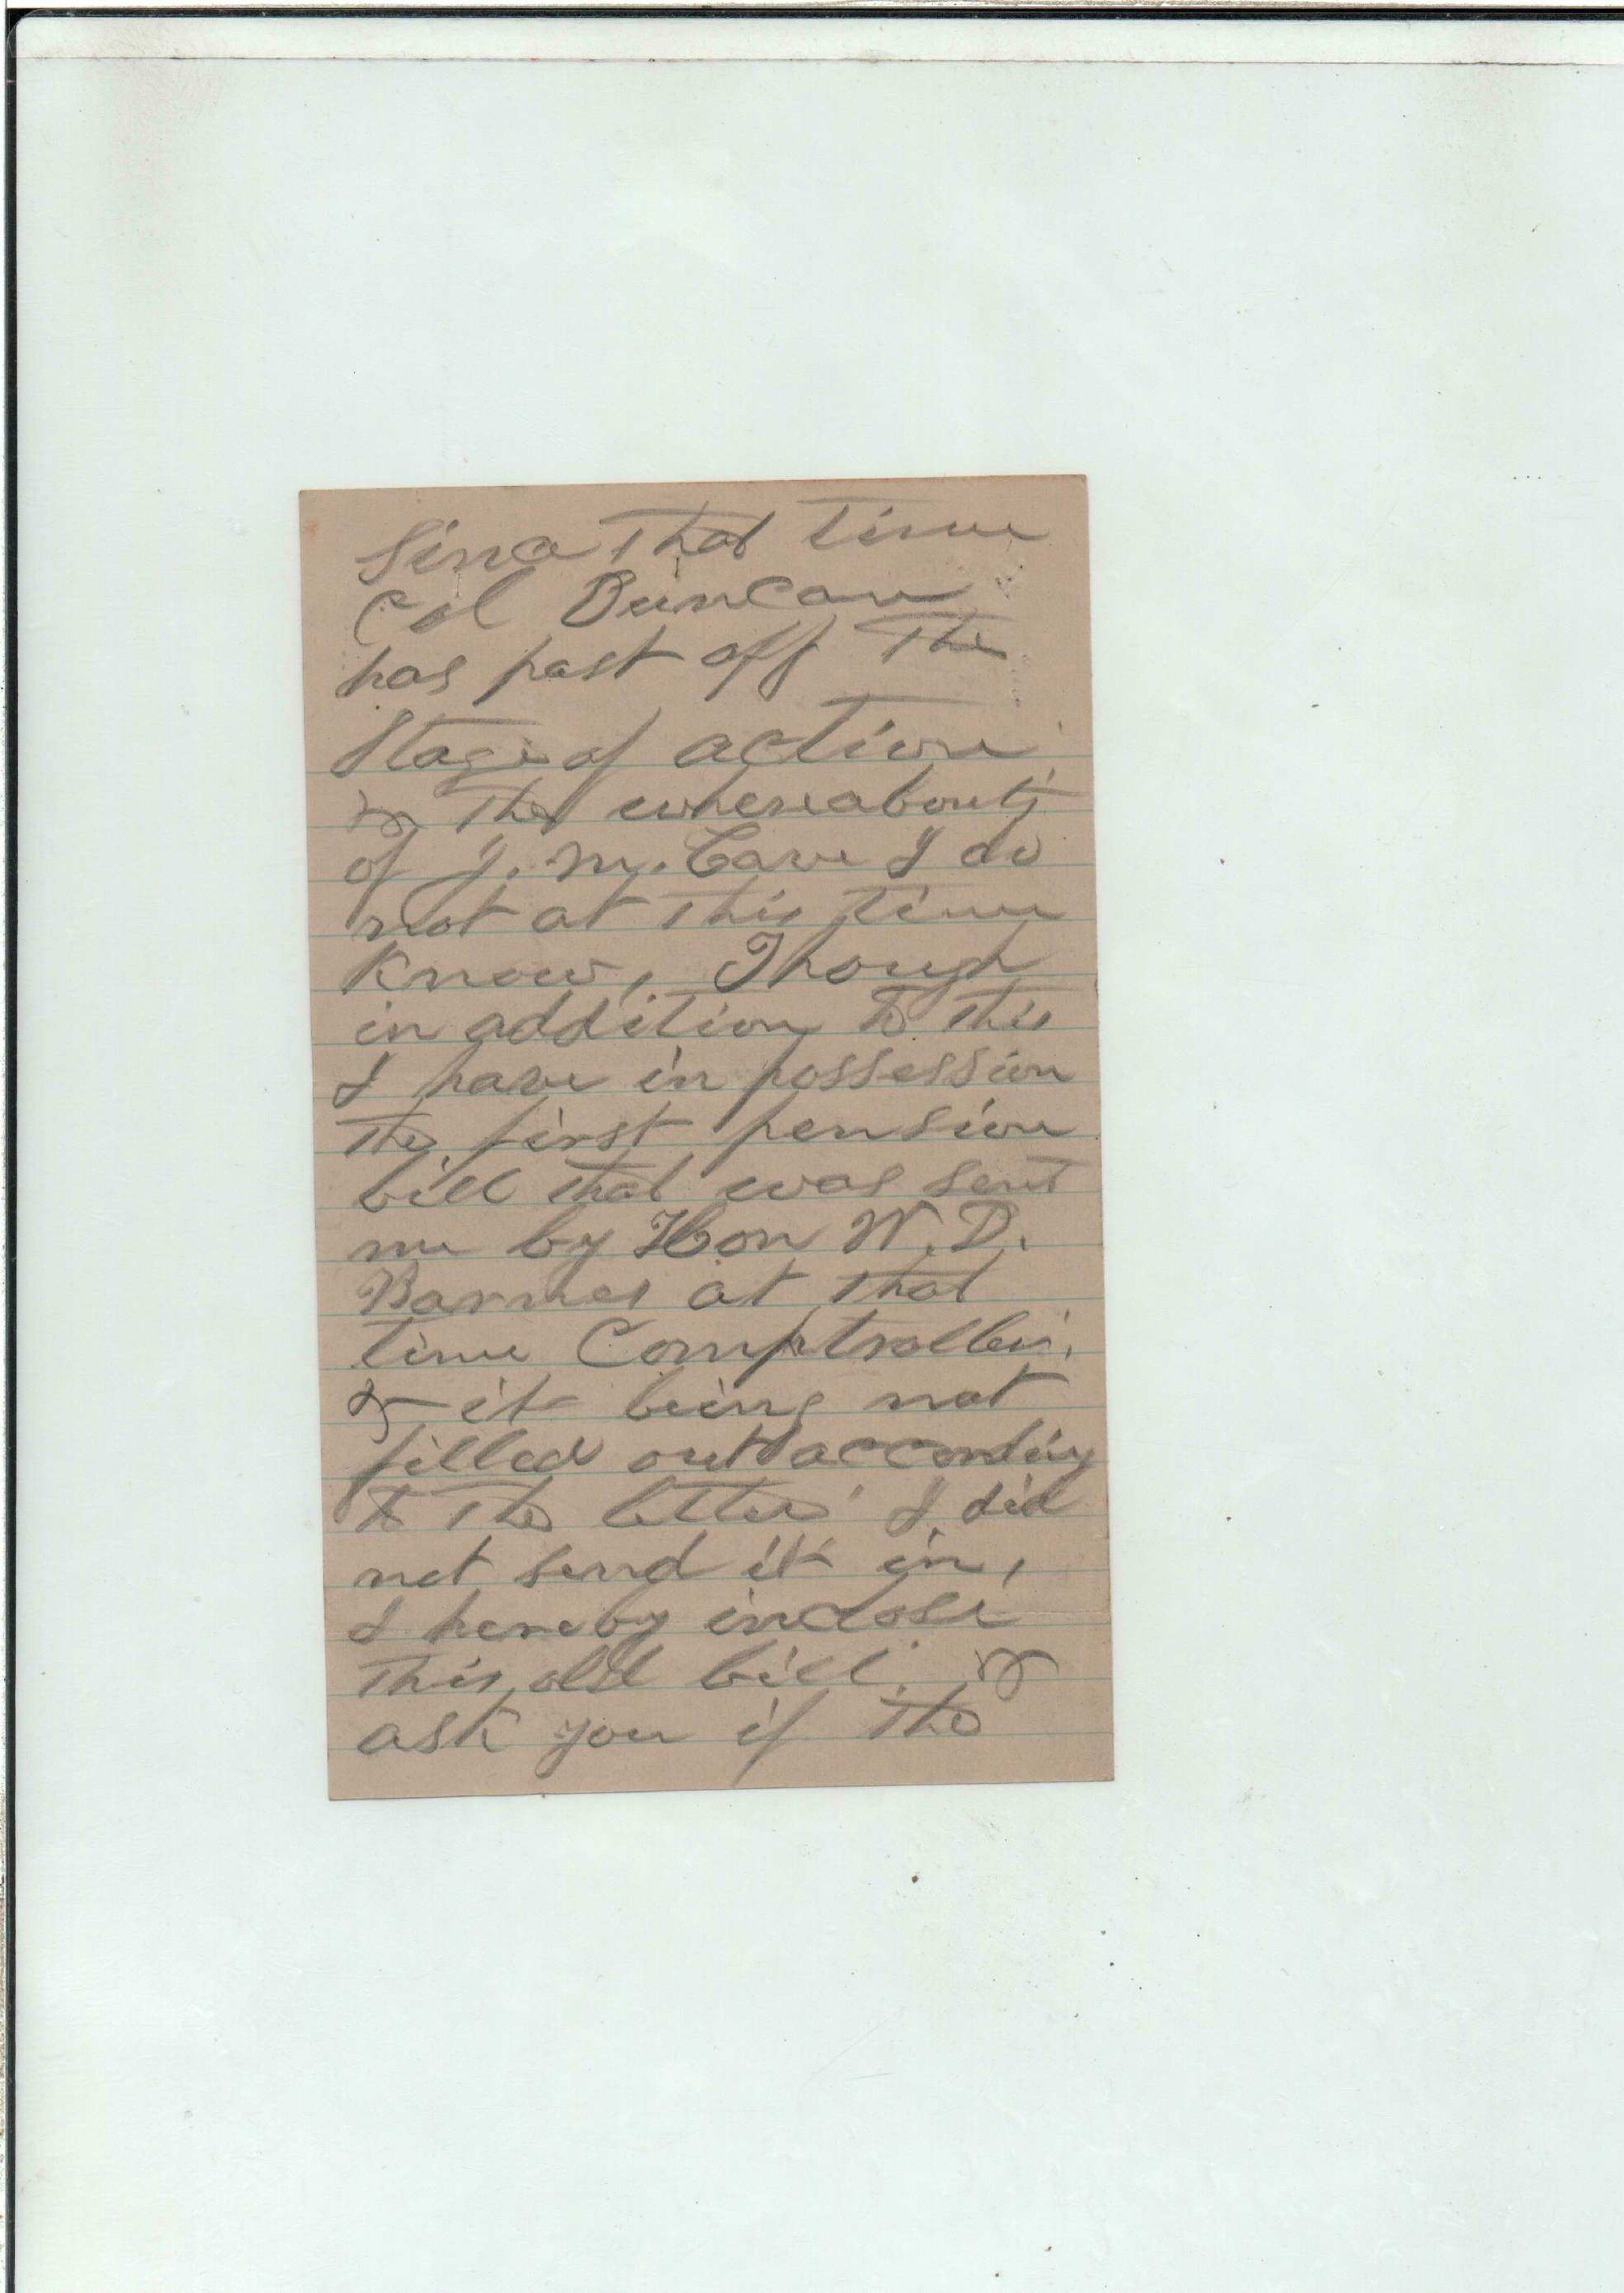 Since that time
Col Duncan
has past off the
Stage of action
& the whereabouts
of J. M. Cave I do
not at this time
Know, Though
in addition to this
I have in possession
the first pension
bill that was sent
me by Hon W. D.
Barnes at that
time Comptroller.
& it being not
filled out according
to the letter I did
not send it in,
I hereby inclose
this old bill. &
ask you if the